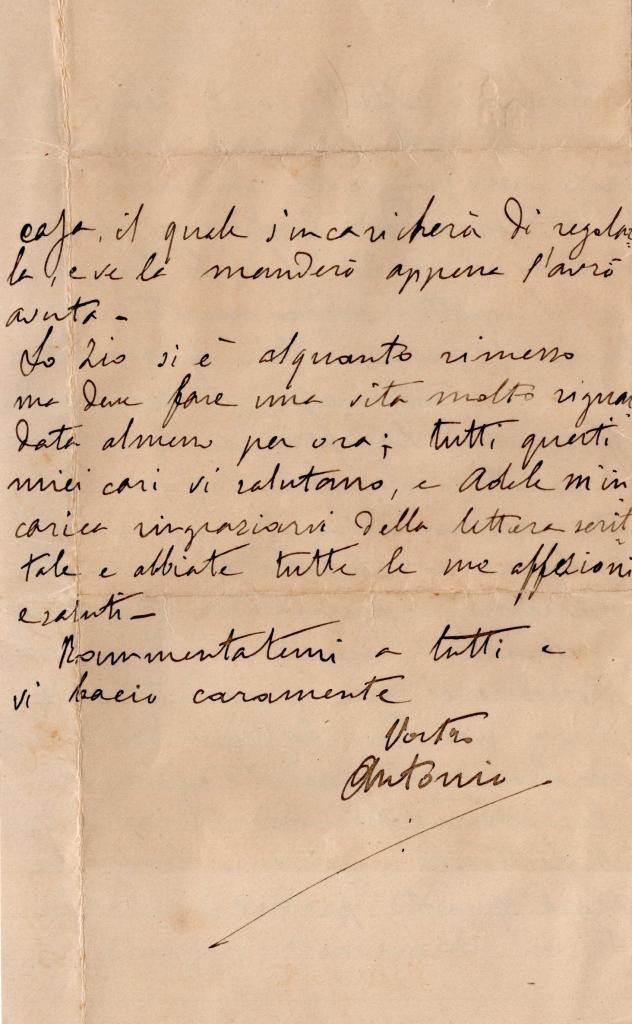 casa, il quale s'incaricherà di regolar=
la, e ve la manderò appena l'avrò
avuta -
Lo Zio si è alquanto rimesso
ma deve fare una vita molto riguar
data almeno per ora; tutti questi
miei cari vi salutano, e Adele m'in
carica ringraziarvi della lettera scrit
tale e abbiate tutte le me affezioni
e saluti -
Rammentatemi a tutti e
vi bacio caramente
Vostro
Antonio